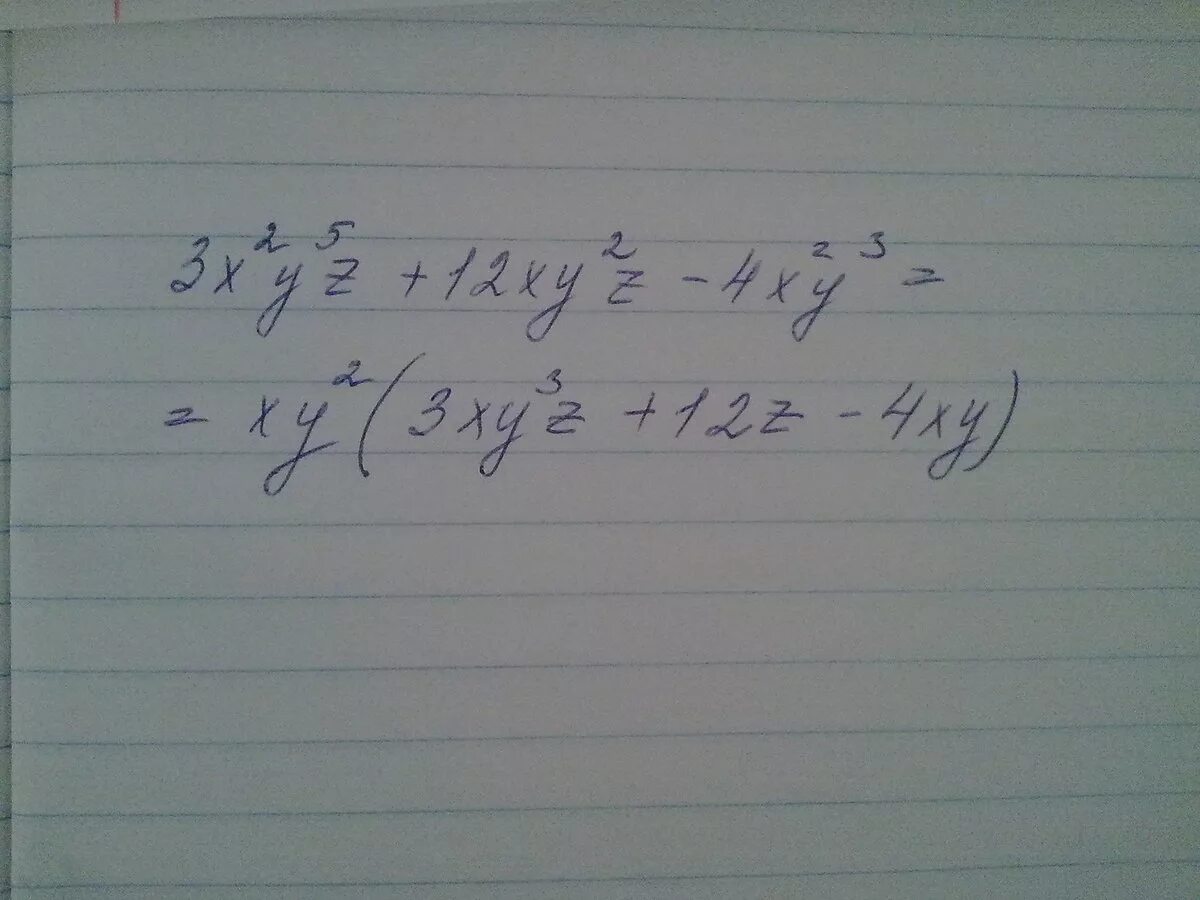 3x²y⁵z + 12xy²z - 4x²y³ =
= xy² (3xy³z + 12z - 4xy)